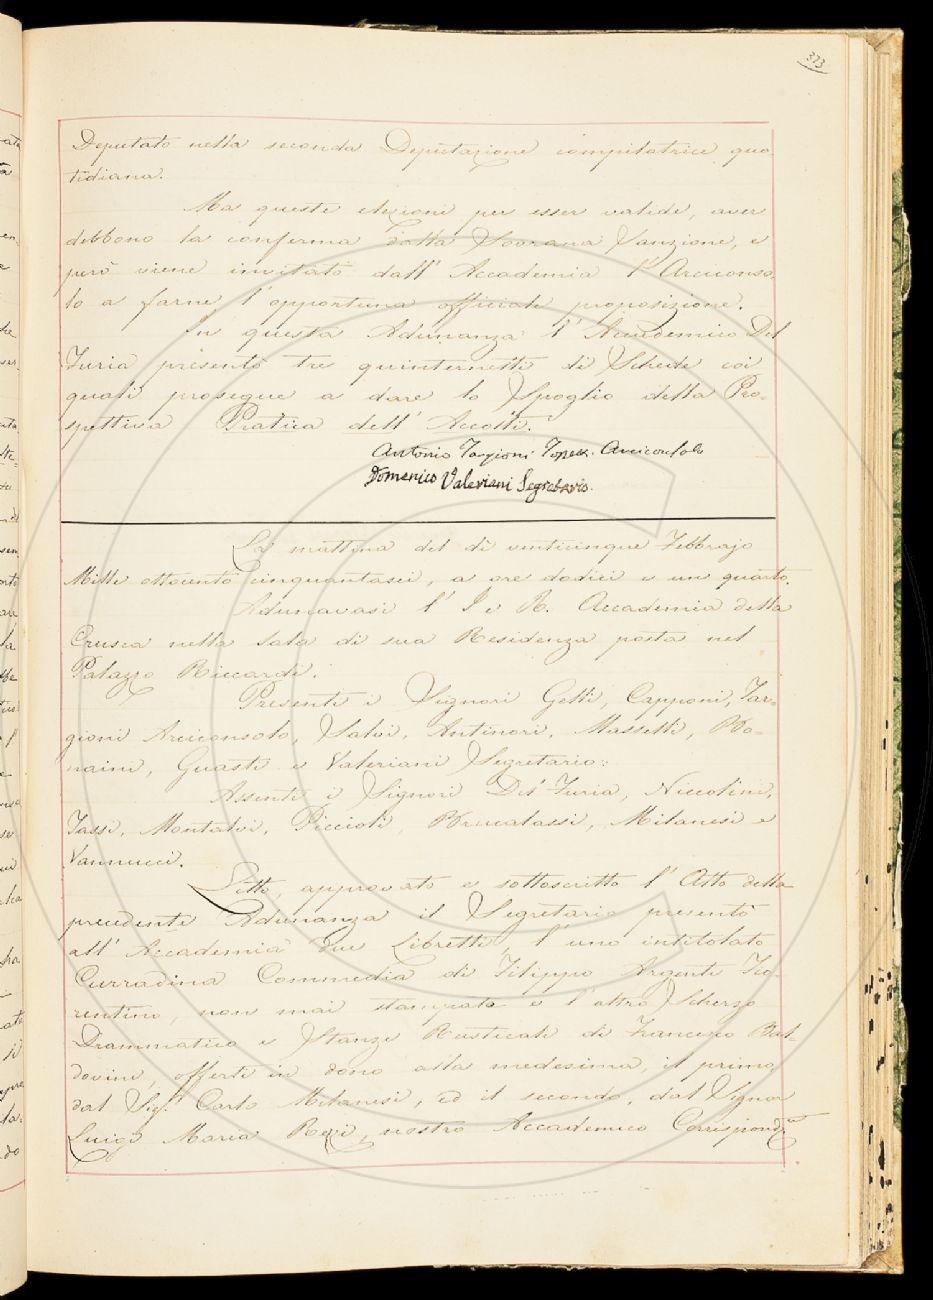 323
Deputato nella seconda Deputazione compilatrice quo
tidiana.
Ma queste elezioni per esser valide, aver
debbono la conferma dalla Sovrana Sanzione, e
però viene invitato dall' Accademia l' Arciconso-
lo a farne l' opportuna officiale proposizione.
In questa Adunanza l' Accademico Del
Furia presentò tre quinternetti di Schede coi
quali prosegue a dare lo Spoglio della Pro-
spettiva Pratica dell' Accolti.
Antonio Targioni Tozzetti Arciconsolo
Domenico Valeriani Segretario.
La mattina del dì venticinque Febbrajo
Mille ottocento cinquantasei, a ore dodici e un quarto.
Adunavasi l' I. e R. Accademia della
Crusca nella Sala di sua Residenza posta nel
Palazzo Riccardi.
Presenti i Signori Gelli, Capponi, Tar-
gioni Arciconsolo, Salvi, Antinori, Masselli, Bo-
naini, Guasti e Valeriani Segretario:
Assenti i Signori Del Furia, Niccolini,
Tassi, Montalvi, Piccioli, Brucalassi, Milanesi e
Vannucci.
Letto, approvato e sottoscritto l' Atto della
precedente Adunanza il Segretario presentò
all' Accademia due Libretti, l' uno intitolato
Curradina Commedia di Filippo Argenti Fio-
rentino, non mai stampata e l' altro Scherzo
Drammatico e Stanze Rusticali di Francesco Bal-
dovini, offerti in dono alla medesima, il primo
dal Sig. Carlo Milanesi, ed il secondo, dal Signor
Luigi Maria Rezzi, nostro Accademico Corrispond.